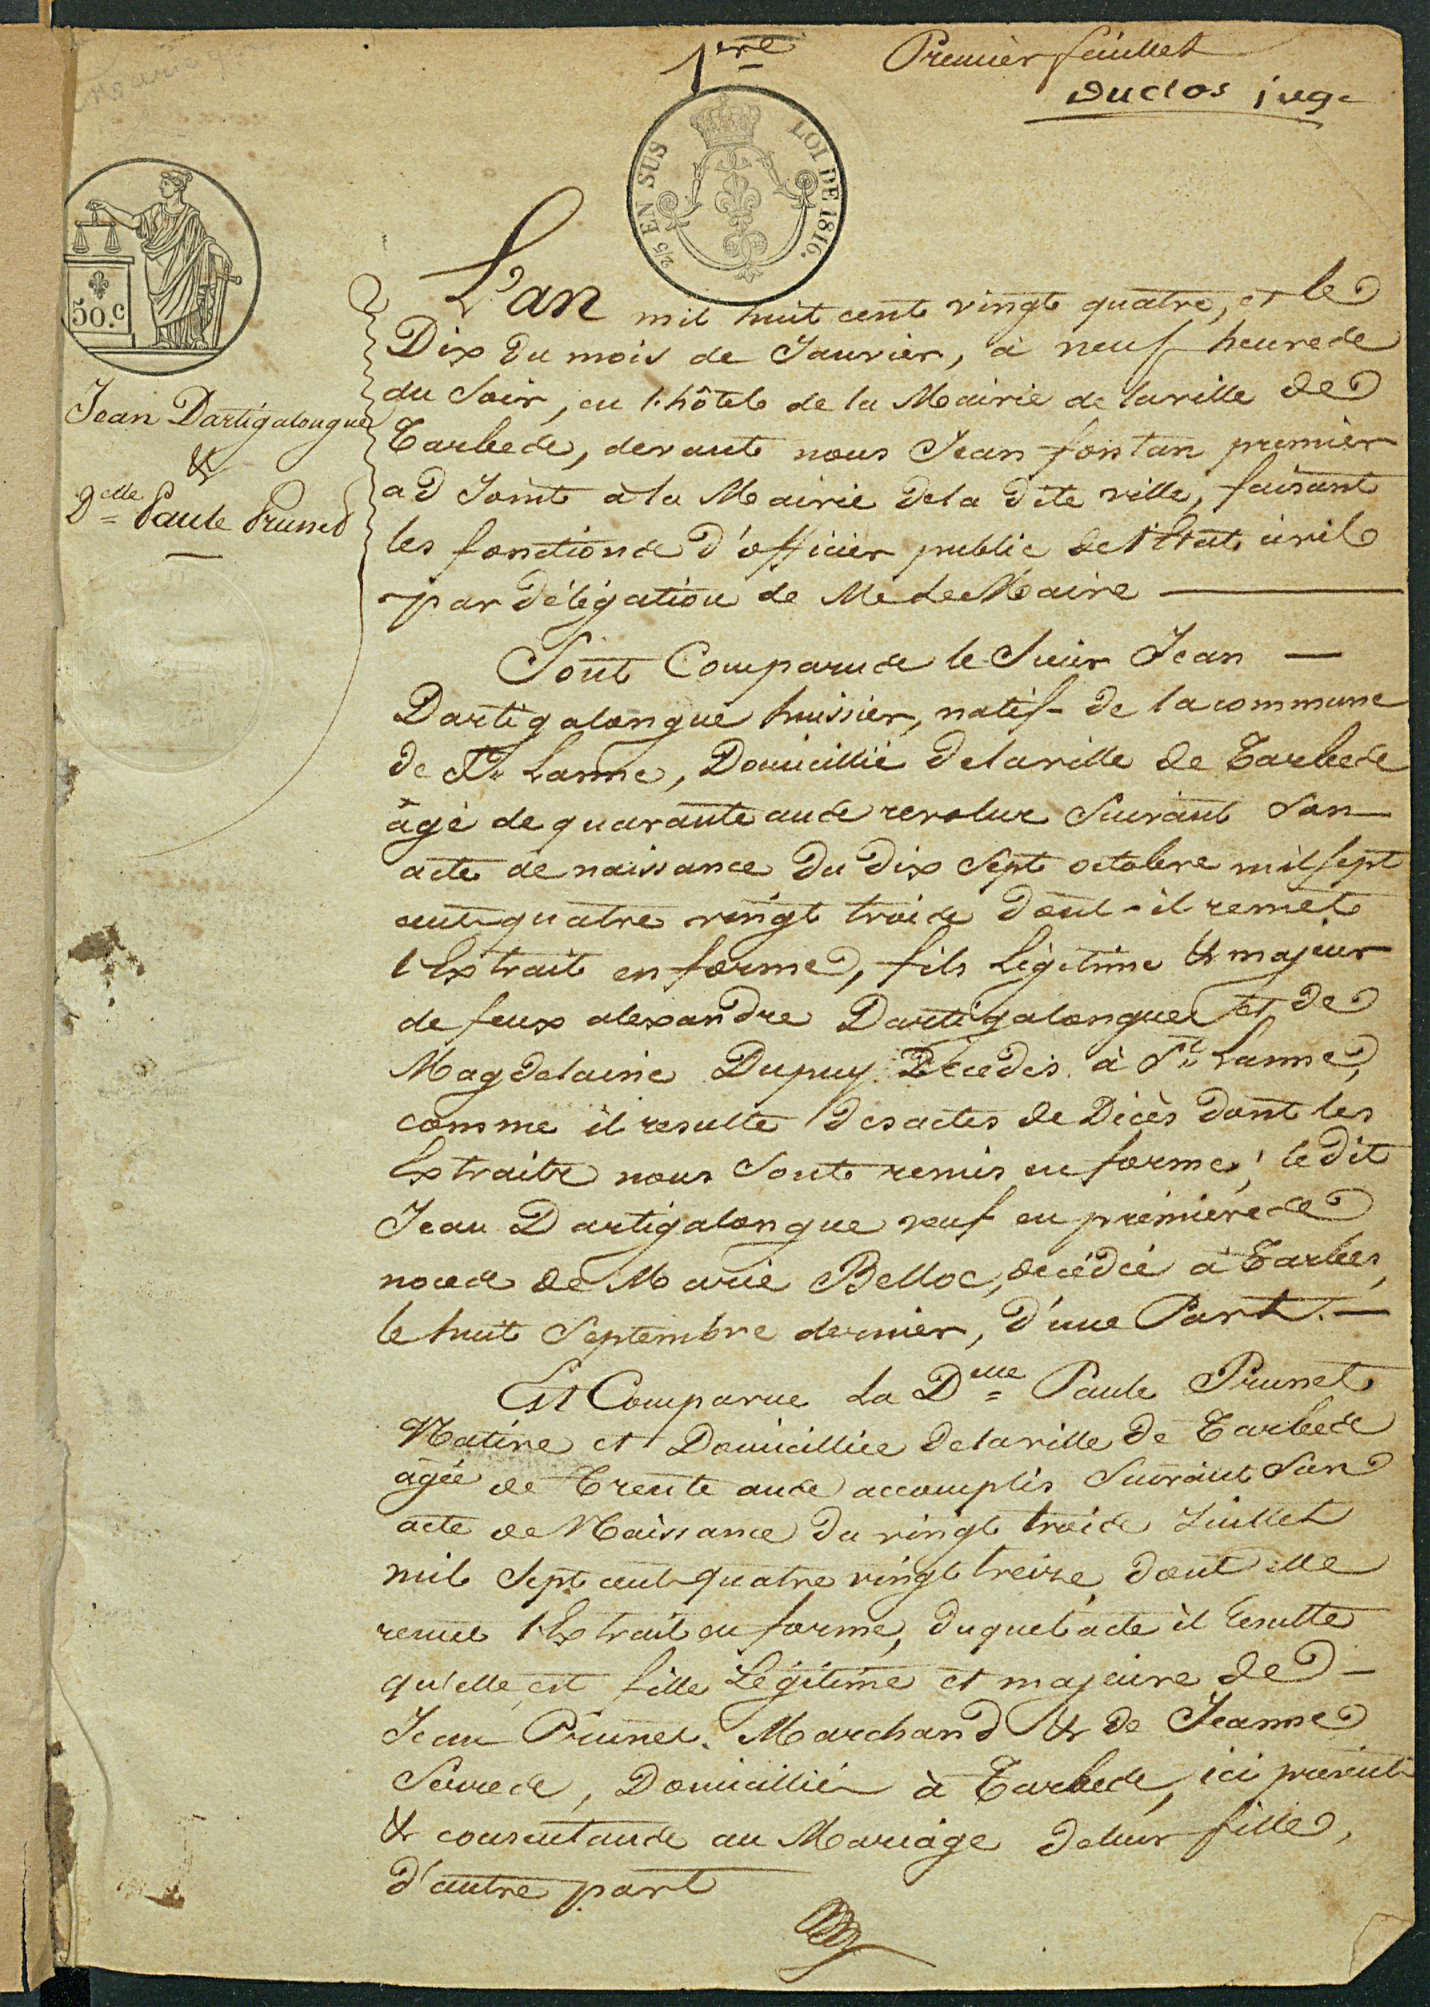 1re
Premier feuillet
Duclos juge
2/5 EN SUS
LOI DE 1816.
50.c
Jean Dartigalongue
&
Delle Paule Prunet
L'an mil huit cent vingt quatre, et le
Dix du mois de Janvier, à neuf heures
du Soir, en l'hôtel de la Mairie de la ville de
Tarbes, devant nous Jean fontan premier
adjoint à la Mairie de la dite ville, faisant
les fonctions d'officier public de l'Etat civil
par délégation de Mr Le Maire
Sont Comparus le Sieur Jean —
Dartigalongue huissier, natif de la commune
de St Lanne, Domicillié de la ville de Tarbes
âgé de quarante ans revolus Suivant Son
acte de naissance du dix Sept octobre mil Sept
cent quatre vingt trois dont il remet
l'Extrait en forme, fils légitime & majeur
de feux alexandre Dartigalongue et de
Magdelaine Dupuy Décedés à St Lanne,
comme il resulte des actes de Décès dont les
Extraits nous Sont remis en forme; le dit
Jean Dartigalongue veuf en premières
noces de Marie Belloc, décédée à Tarbes,
le huit Septembre dernier, d'une Part. —
Est Comparue La Delle Paule Prunet
Native et Domicilliée de la ville de Tarbes
âgée de Trente ans accomplis Suivant Son
acte de Naissance du vingt trois Juillet
mil Sept cent quatre vingt treize, dont elle
remet l'Extrait en forme, duquel acte il resulte
qu'elle est fille Légitime et majeure de —
Jean Prunet Marchand & de Jeanne
Domicilliés à Tarbes, ici présents
& consentans au Mariage de leur fille,
d'autre part